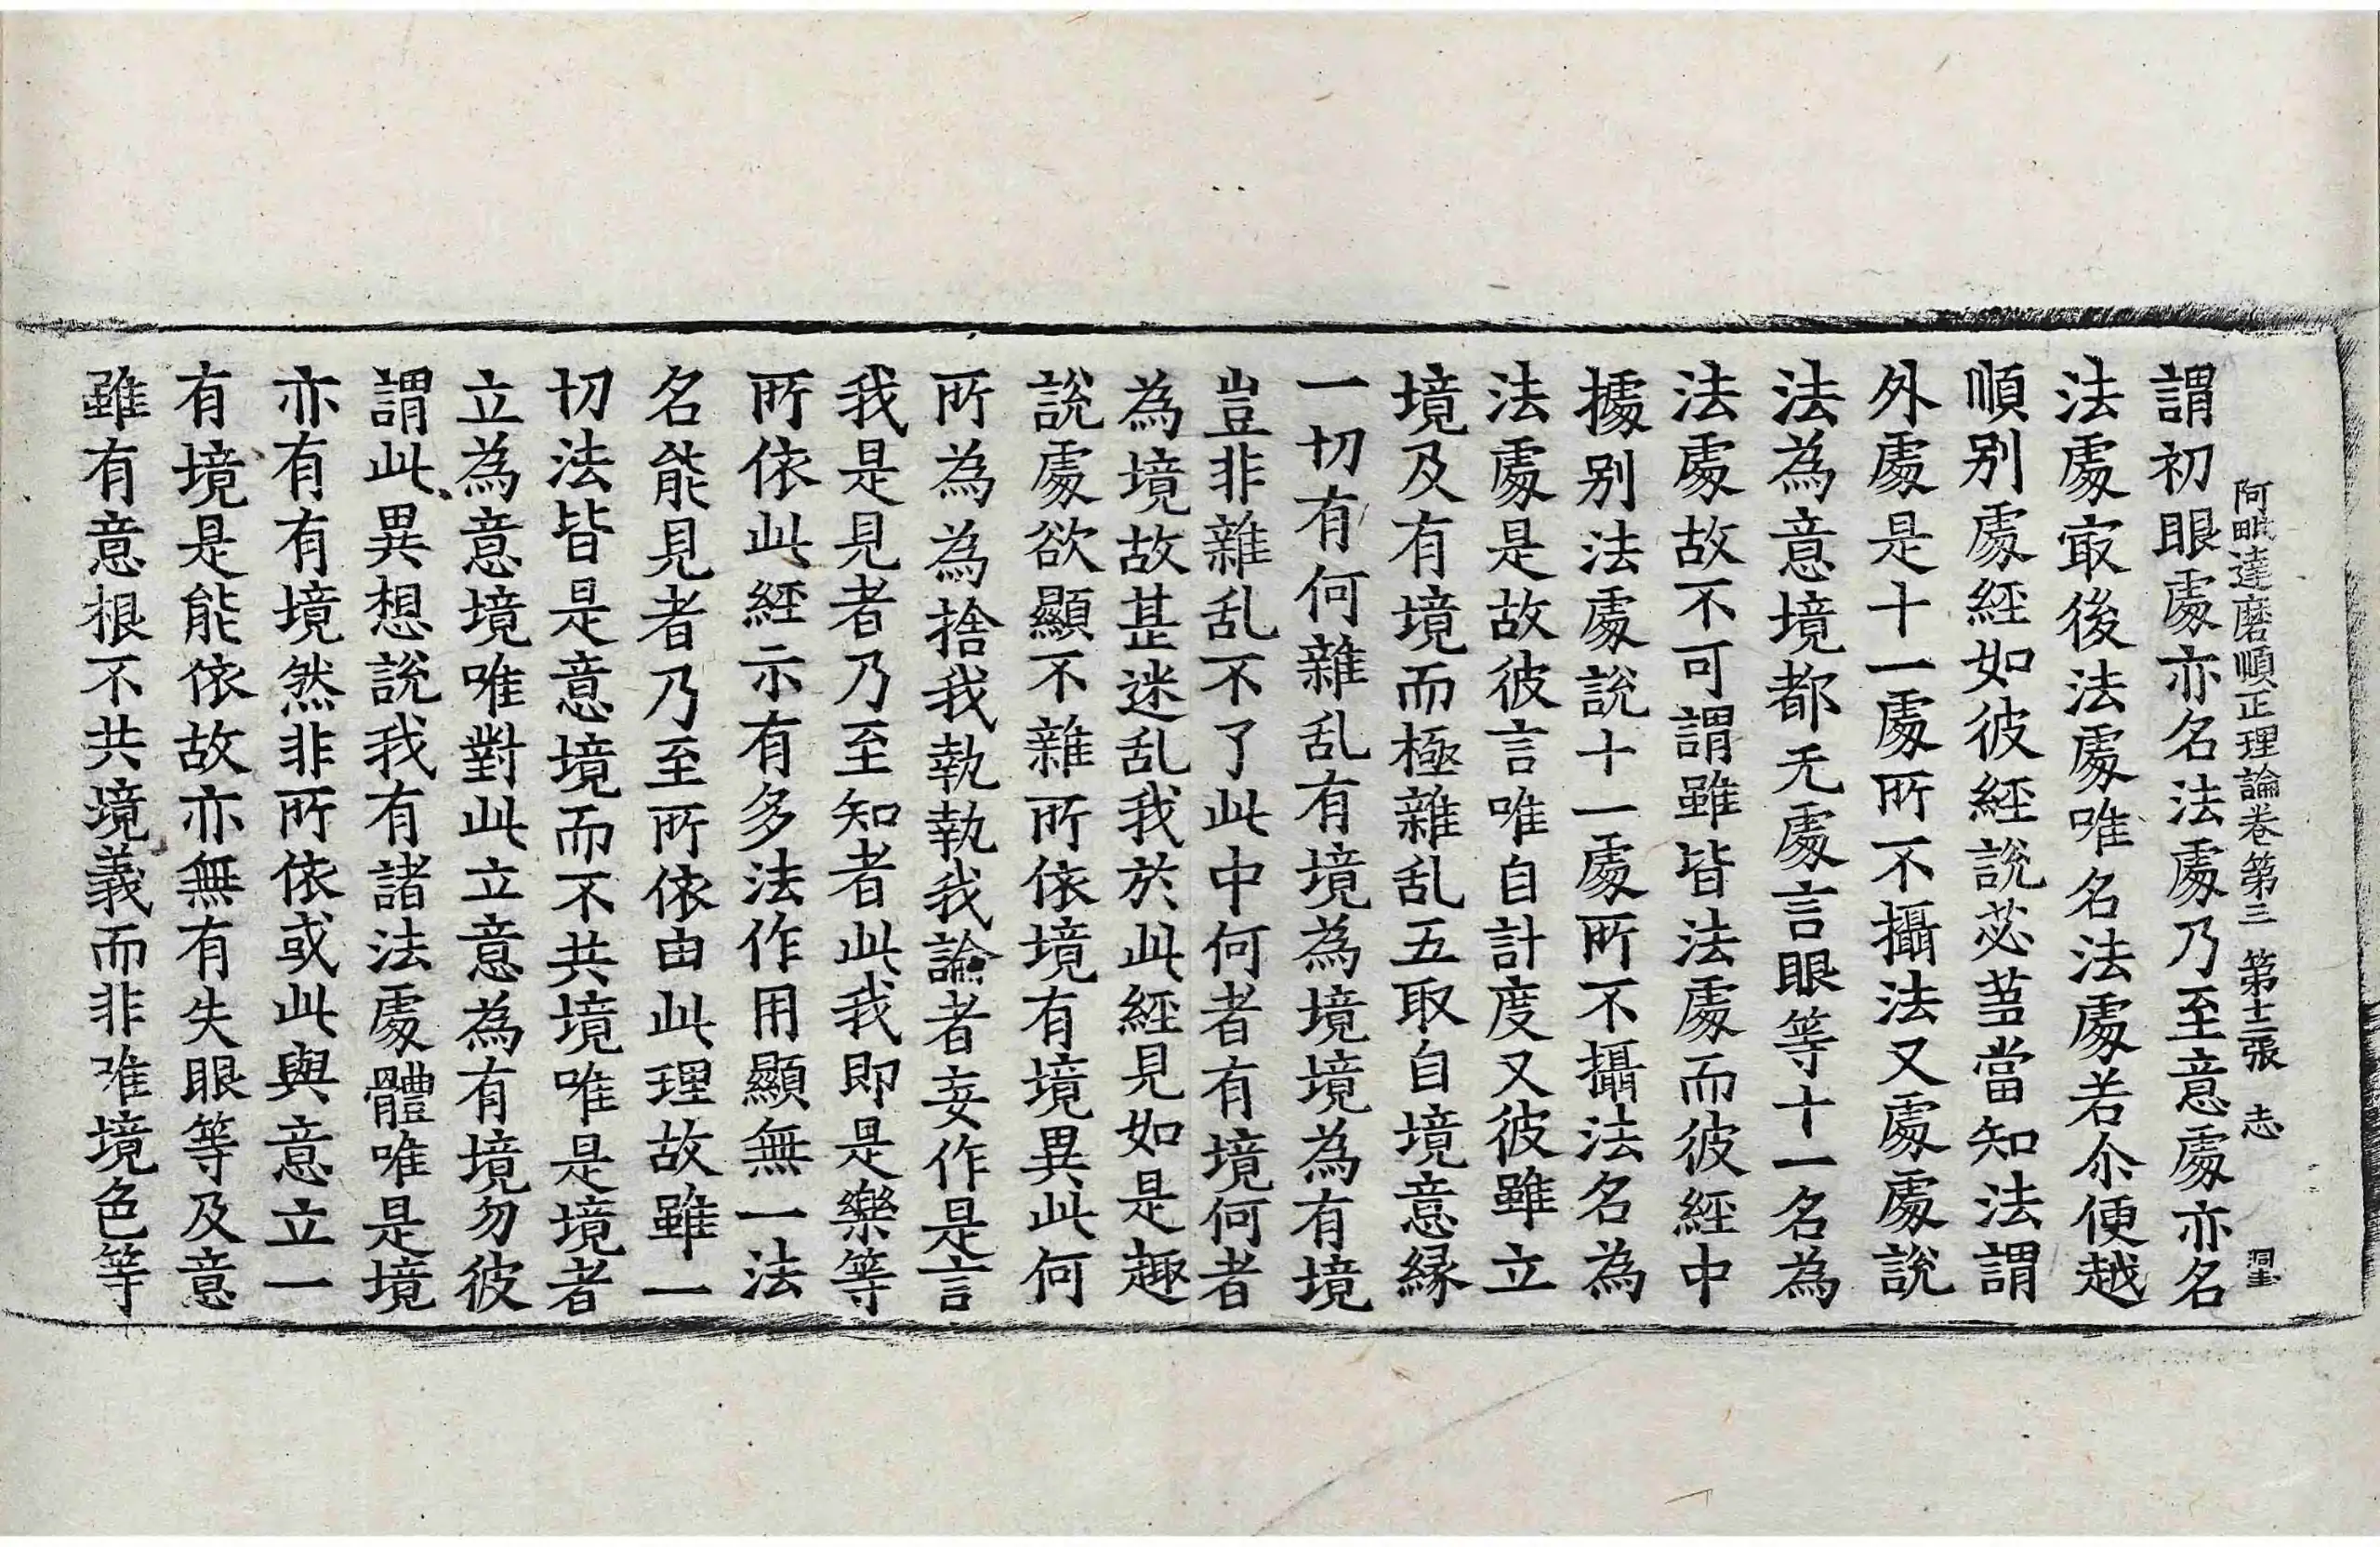 阿毗達磨順正理論卷第三 第十二張 志
謂初眼處亦名法處乃至意處亦名
法處冣後法處唯名法處若尒便越
順别處經如彼經說苾蒭當知法謂
外處是十一處所不攝法又處處說
法為意境都无處言眼等十一名為
法處故不可謂雖皆法處而彼經中
據别法處說十一處所不攝法名為
法處是故彼言唯自計度又彼雖立
境及有境而極雜乱五取自境意緣
一切有何雜乱有境為境境為有境
豈非雜乱不了此中何者有境何者
為境故甚迷乱我於此經見如是趣
說處欲顯不雜所依境有境異此何
所為為捨我執執我論者妄作是言
我是見者乃至知者此我即是樂等
所依此經示有多法作用顯無一法
名能見者乃至所依由此理故雖一
切法皆是意境而不共境唯是境者
立為意境唯對此立意為有境勿彼
謂此異想說我有諸法處體唯是境
亦有有境然非所依或此與意立一
有境是能依故亦無有失眼等及意
雖有意根不共境義而非唯境色等